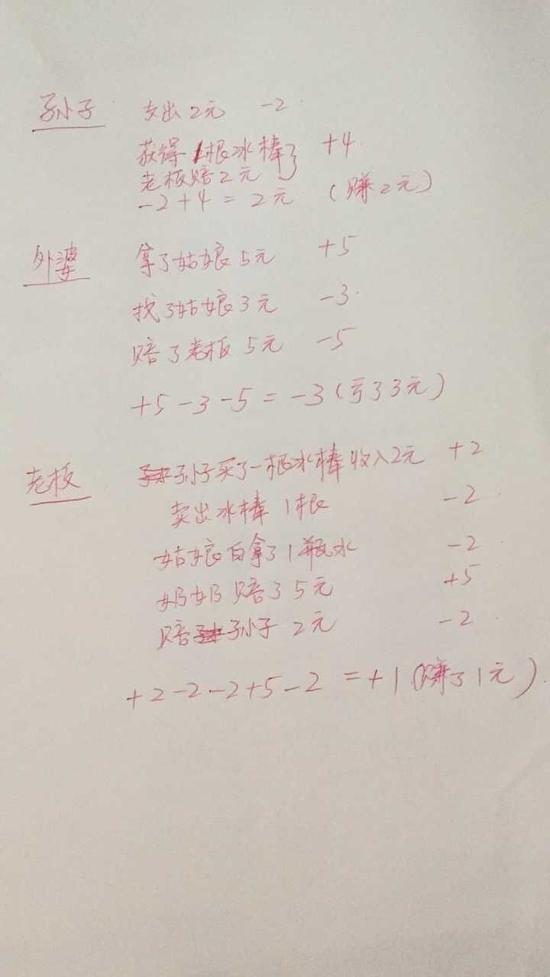 孙小子 支出2元 -2
获得1根冰棒 } +4
老板赔2元
-2+4=2元 (赚2元)
外婆 拿了姑娘5元 +5
找了姑娘3元 -3
赔了老板5元 -5
+5-3-5=-3(亏了3元)
老板 孙子买了一根冰棒收入2元 +2
卖出冰棒1根 -2
姑娘白拿了1瓶水 -2
奶奶赔了5元 +5
赔孙子2元 -2
+2-2-2+5-2=+1(赚了1元)